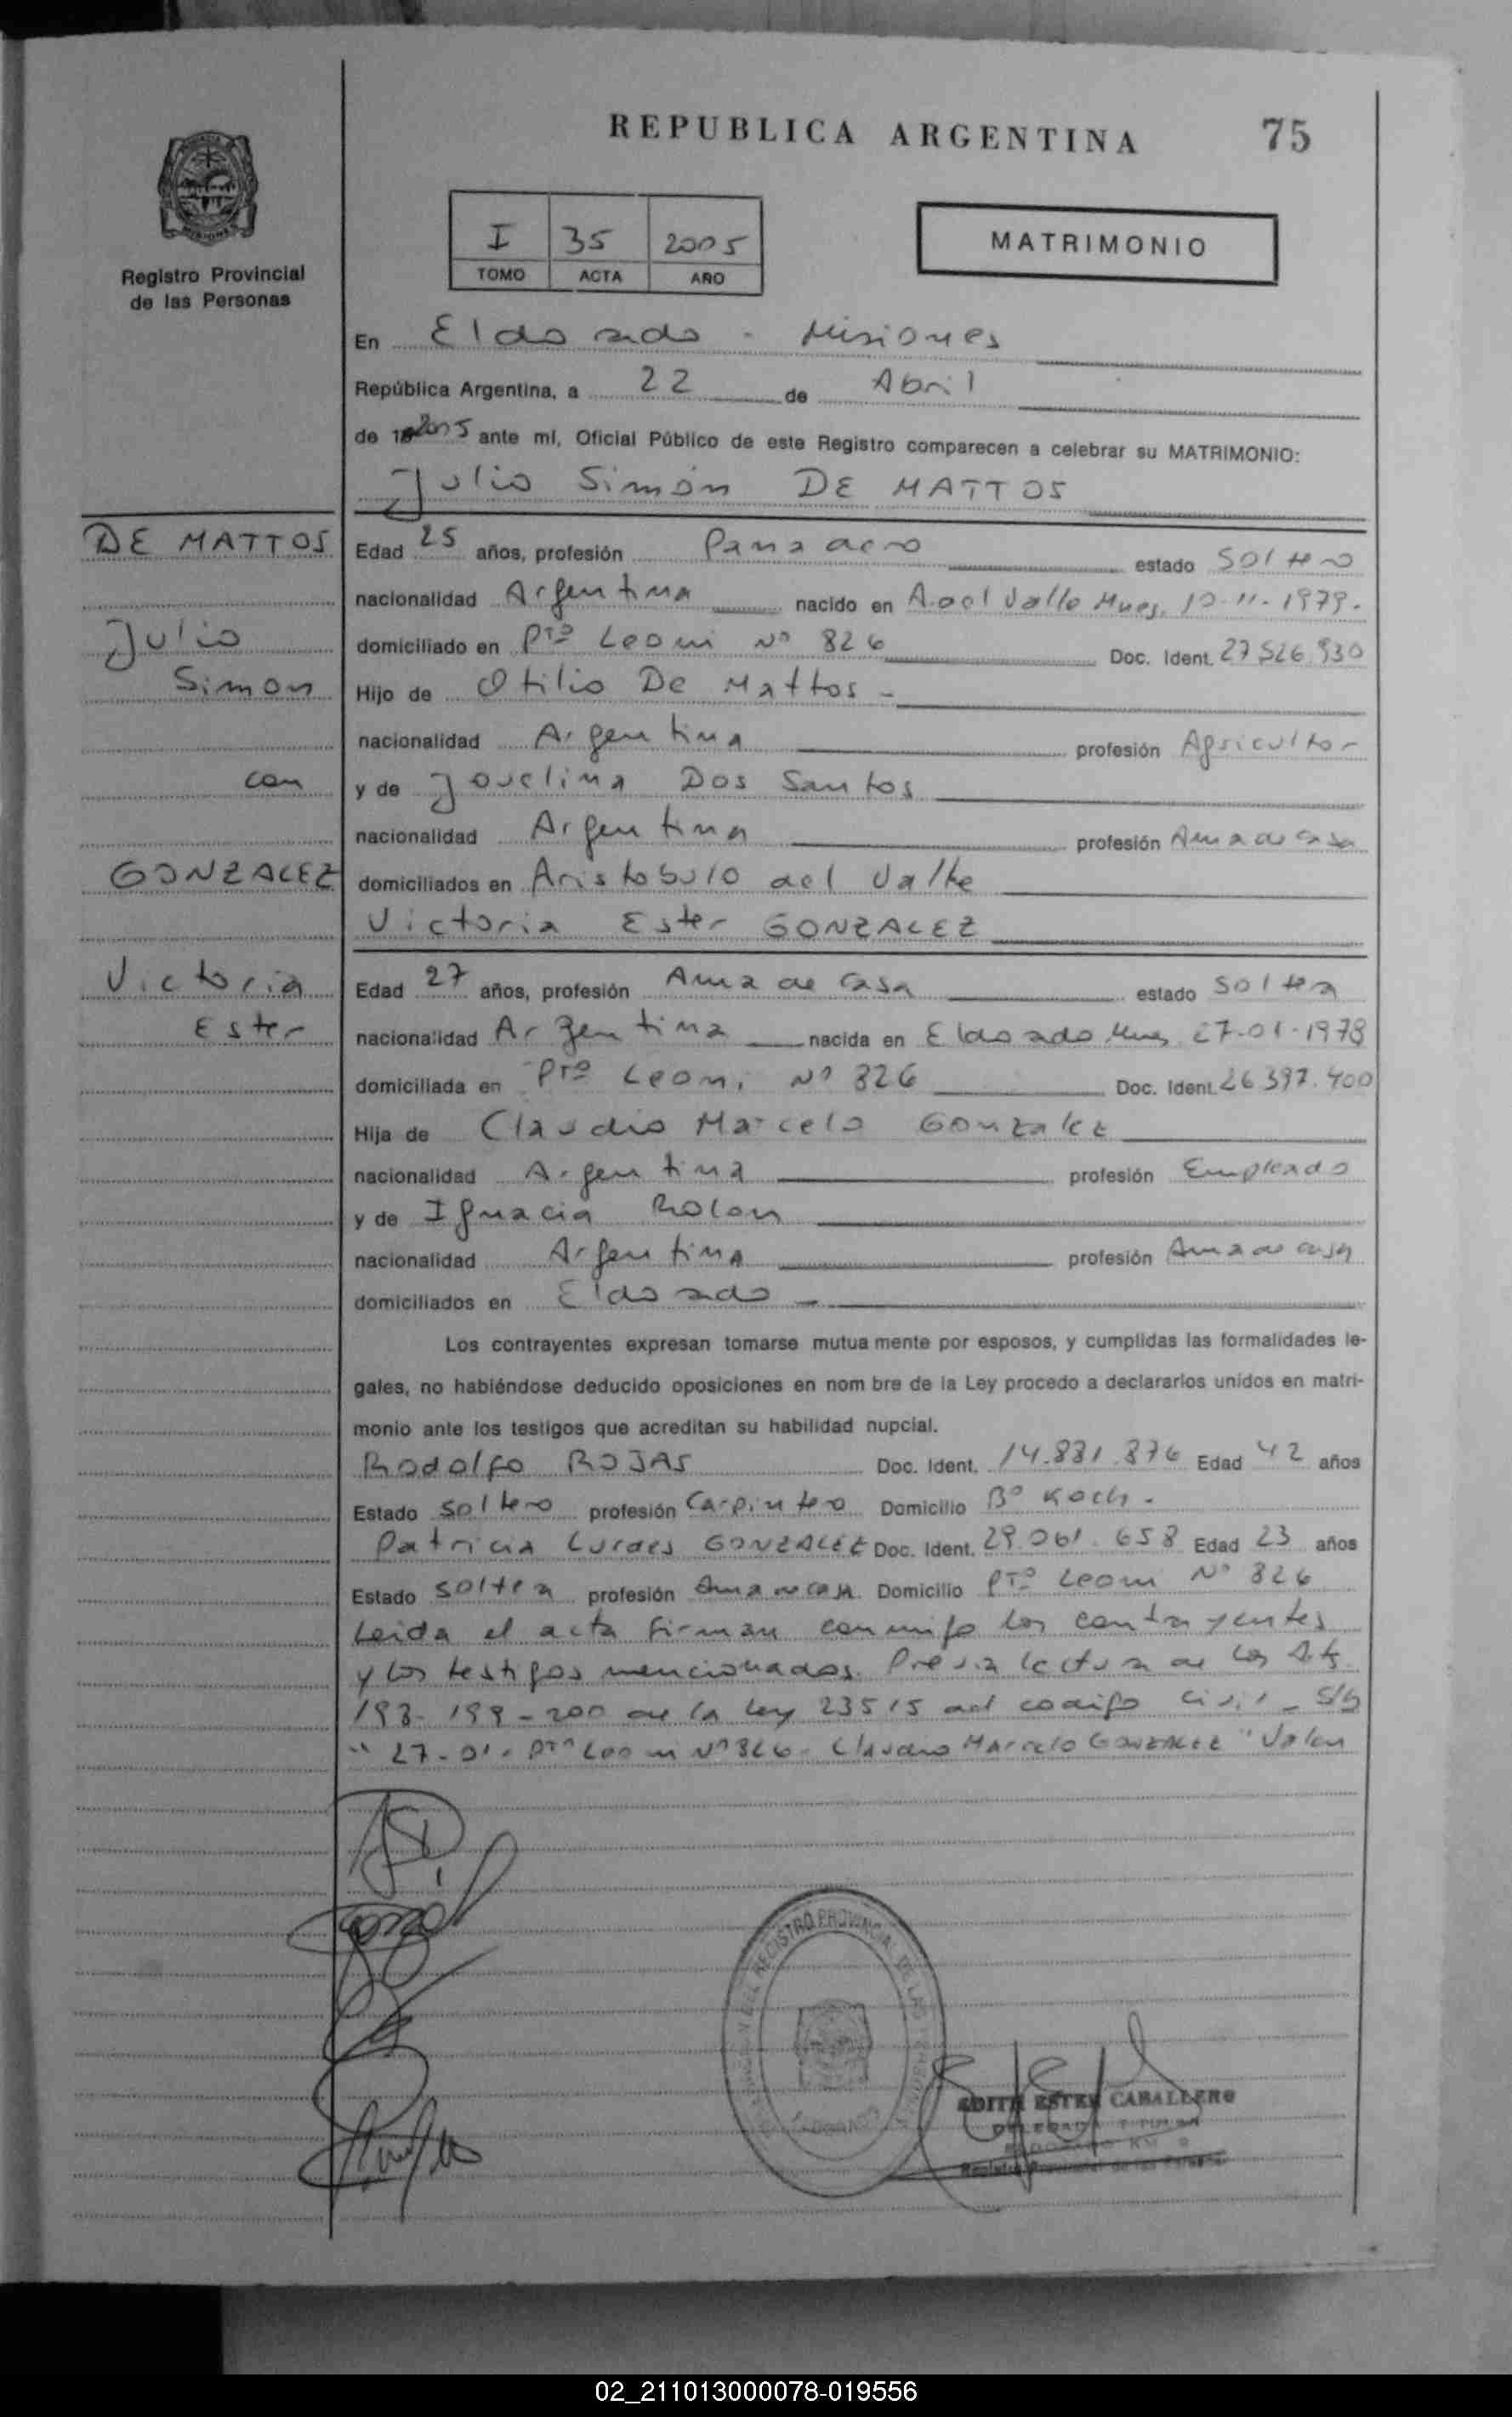 REPUBLICA ARGENTINA 75
Registro Provincial
de las Personas
I 35 2005
TOMO ACTA AÑO
MATRIMONIO
En Eldorado - Misiones
República Argentina, a 22 de Abril
de 2005 ante mí, Oficial Público de este Registro comparecen a celebrar su MATRIMONIO:
Julio Simón DE MATTOS
DE MATTOS
Julio
Simon
con
GONZALEZ
Victoria
Ester
Edad 25 años, profesión Panadero estado Soltero
nacionalidad Argentina nacido en A. del Valle Mnes. 10-11-1979.
domiciliado en Pto Leoni Nº 826 Doc. Ident. 27.526.930
Hijo de Otilio De Mattos -
nacionalidad Argentina profesión Agricultor
y de Jovelina Dos Santos
nacionalidad Argentina profesión Ama de casa
domiciliados en Aristobulo del Valle
Victoria Ester GONZALEZ
Edad 27 años, profesión Ama de Casa estado Soltera
nacionalidad Argentina nacida en Eldorado Mnes 27-01-1978
domiciliada en Pto Leoni Nº 826 Doc. Ident. 26.397.400
Hija de Claudio Marcelo Gonzalez
nacionalidad Argentina profesión Empleado
y de Ignacia Rolon
nacionalidad Argentina profesión Ama de casa
domiciliados en Eldorado -
Los contrayentes expresan tomarse mutua mente por esposos, y cumplidas las formalidades le-
gales, no habiéndose deducido oposiciones en nom bre de la Ley procedo a declararlos unidos en matri-
monio ante los testigos que acreditan su habilidad nupcial.
Rodolfo ROJAS Doc. Ident. 14.881.876 Edad 42 años
Estado Soltero profesión Carpintero Domicilio Bº Koch -
Patricia Lurdes GONZALEZ Doc. Ident. 29.061.658 Edad 23 años
Estado soltera profesión Ama de casa Domicilio Pto Leoni Nº 826
Leida el acta firman conmigo los contrayentes
y los testigos mencionados. Previa lectura de los Arts.
198-199-200 de la Ley 23515 del codigo civil - S/b
" 27-01- Pto Leoni Nº 826 - Claudio Marcelo GONZALEZ " Valen
REGISTRO PROVINCIAL DE LAS
EDITH ESTER CABALLERO
Registro Provincial de las Personas
02_211013000078-019556